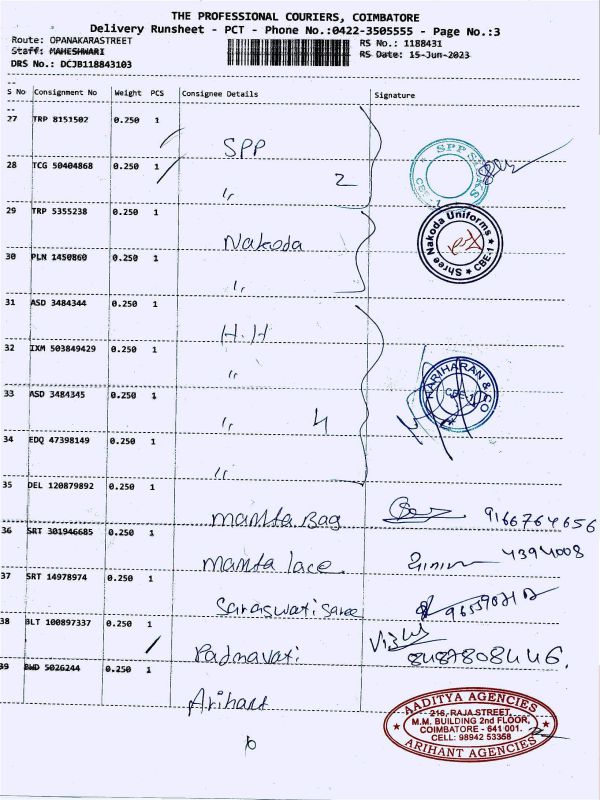 THE PROFESSIONAL COURIERS, COIMBATORE
Delivery Runsheet - PCT - Phone No.:0422-3505555 - Page No.:3
Route: OPANAKARASTREET RS No.: 1188431
Staff: MAHESHWARI RS Date: 15-Jun-2023
DRS No.: DCJB118843103
S No Consignment No Weight PCS Consignee Details Signature
27 TRP 8151502 0.250 1
SPP
28 TCG 50404868 0.250 1
〃 2
SPP SILKS
CBE-1
29 TRP 5355238 0.250 1
Nakoda
30 PLN 1450860 0.250 1
〃
Shree Nakoda Uniforms
★ CBE-1 ★
31 ASD 3484344 0.250 1
H.H
32 IXM 503849429 0.250 1
〃
33 ASD 3484345 0.250 1
〃 4
HARIHARAN & CO
CBE-1
34 EDQ 47398149 0.250 1
〃
35 DEL 120879892 0.250 1
mamta Bag 9166764656
36 SRT 301946685 0.250 1
mamta lace. 4394008
37 SRT 14978974 0.250 1
Saraswati saree
38 BLT 100897337 0.250 1
Padmavati 8487808446.
39 BWD 5026244 0.250 1
Arihant
AADITYA AGENCIES
218, RAJA STREET,
M.M. BUILDING 2nd FLOOR,
COIMBATORE - 641 001.
CELL: 98942 53358
★ ARIHANT AGENCIES ★